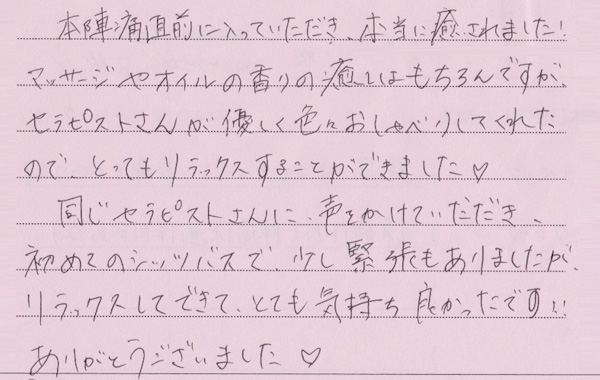 本陣痛直前に入っていただき、本当に癒されました!
マッサージやオイルの香りの癒しはもちろんですが、
セラピストさんが優しく色々おしゃべりしてくれた
ので、とってもリラックスすることができました♡
同じセラピストさんに、声をかけていただき、
初めてのシッツバスで、少し緊張もありましたが、
リラックスしてできて、とても気持ち良かったです!!
ありがとうございました♡